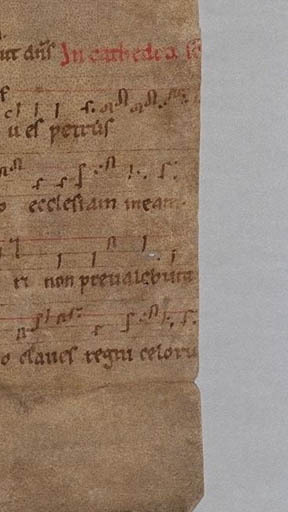 In cathedra s
u es petrus
ecclesiam meam
ri non prevalebunt
o claves regni celoru